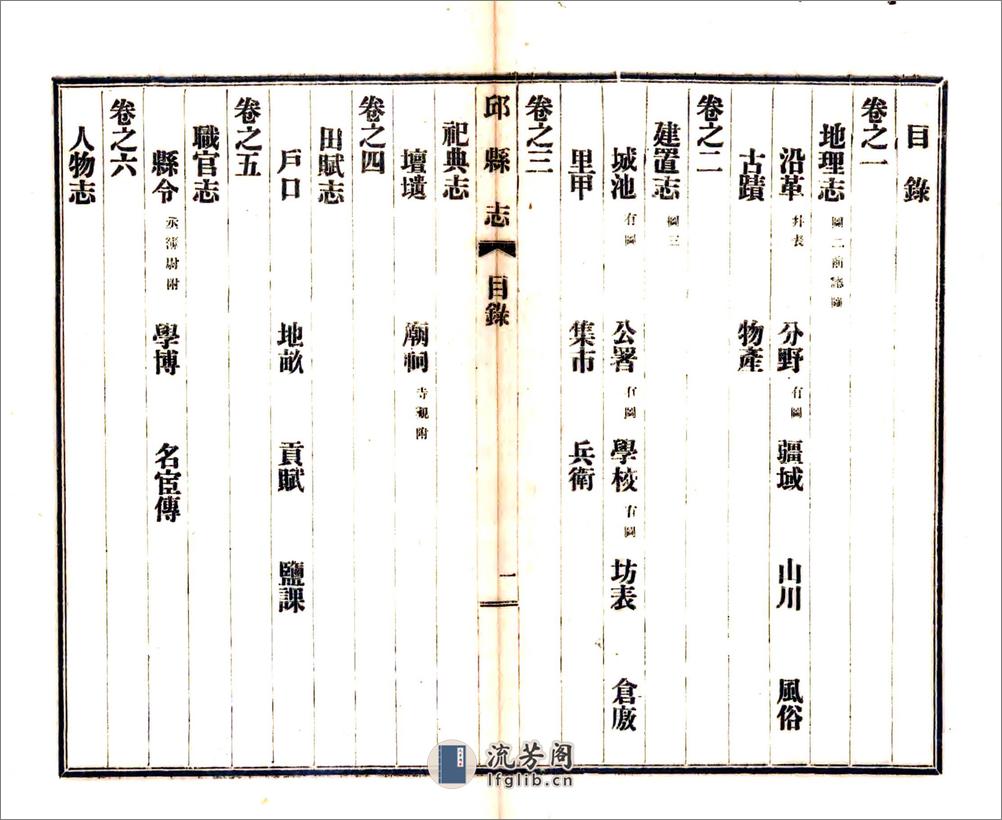 目錄
卷之一
地理志 圖二
沿革 并表 分野 有圖 疆域 山川 風俗
古蹟 物產
卷之二
建置志 圖三
城池 有圖 公署 有圖 學校 有圖 坊表 倉廒
里甲 集市 兵衛
卷之三
邱縣志 目錄 一
祀典志
壇壝 廟祠 寺觀附
卷之四
田賦志
戶口 地畝 貢賦 鹽課
卷之五
職官志
縣令 丞簿尉附 學博 名宦傳
卷之六
人物志
流芳阁
lfglib.cn